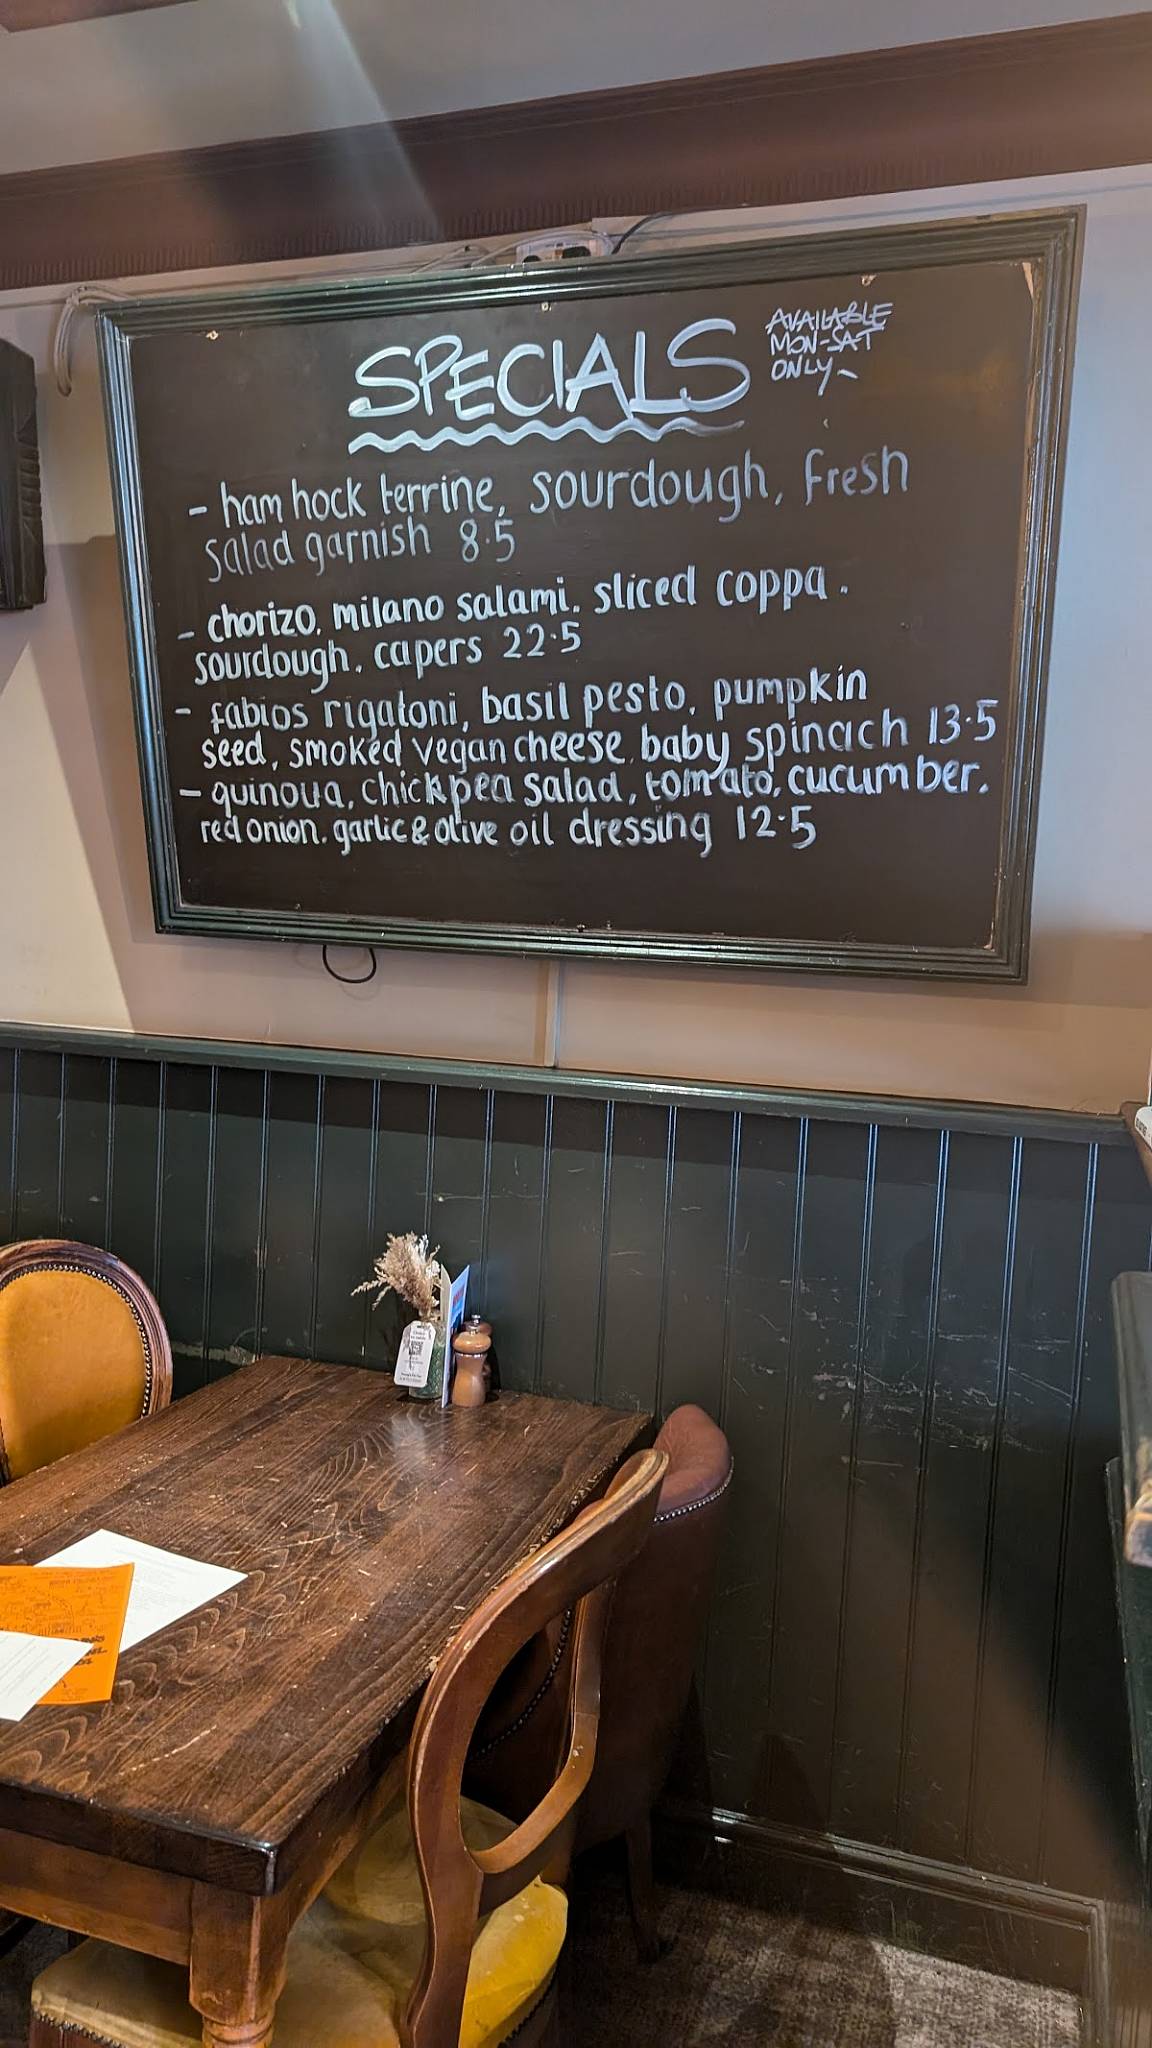 SPECIALS
AVAILABLE
MON-SAT
ONLY
- ham hock terrine, sourdough, fresh
salad garnish 8.5
- chorizo, milano salami, sliced coppa.
sourdough, capers 22.5
- fabios rigatoni, basil pesto, pumpkin
seed, smoked vegan cheese, baby spinach 13.5
- quinoua, chickpea salad, tomato, cucumber.
red onion, garlic & olive oil dressing 12.5